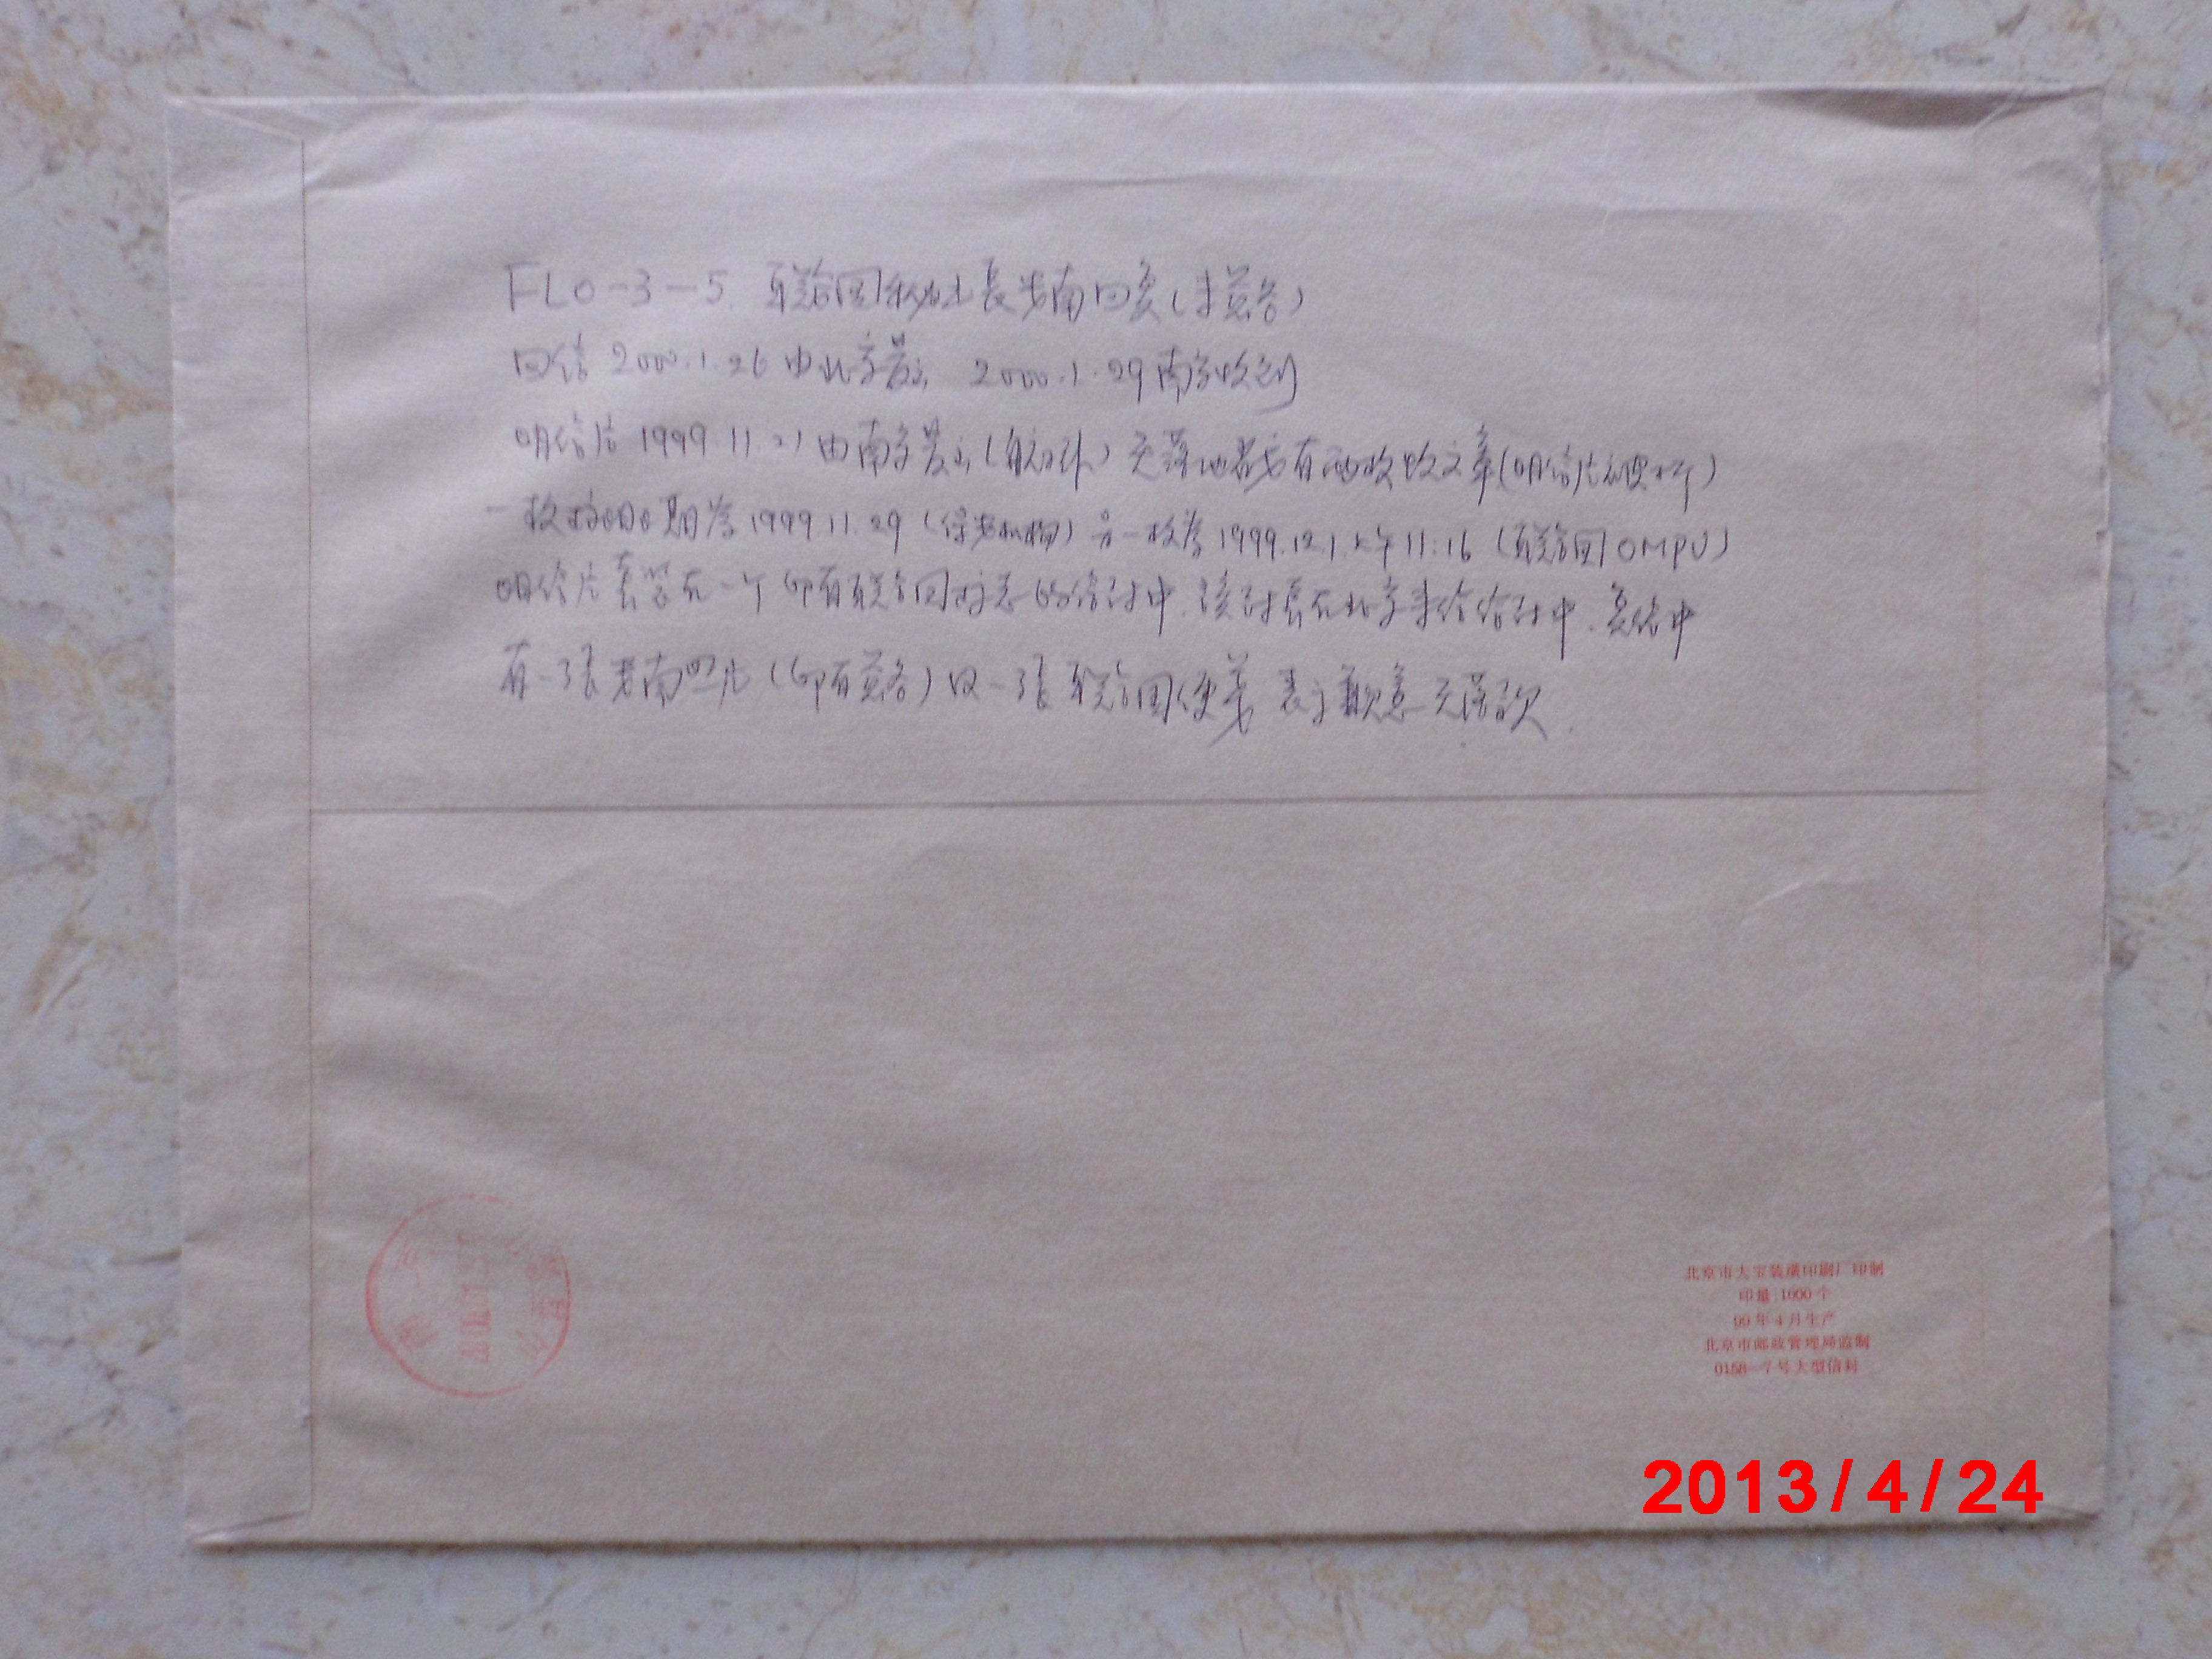 FLO-3-5. 联合国秘书长安南回复(未签名)
回信 2000.1.26 由北京发出 2000.1.29 南京收到
明信片 1999.11.21 由南京发出(航挂) 无落地戳 有两枚收文章(明信片被打
一枚 日期为 1999.11.29 ( ) 另一枚为 1999.12.1. 上午 11:16 (联合国 OMPU)
明信片套装在一个印有联合国标志的信封中. 该封套在北京 信封中. 复信中
有一张安南照片(印有签名)及一张联合国便笺 表示歉意 无落款.
北京市大宝装潢印刷厂印制
印量:1000个
99年4月生产
北京市邮政管理局监制
0158—7号大型信封
2013/4/24